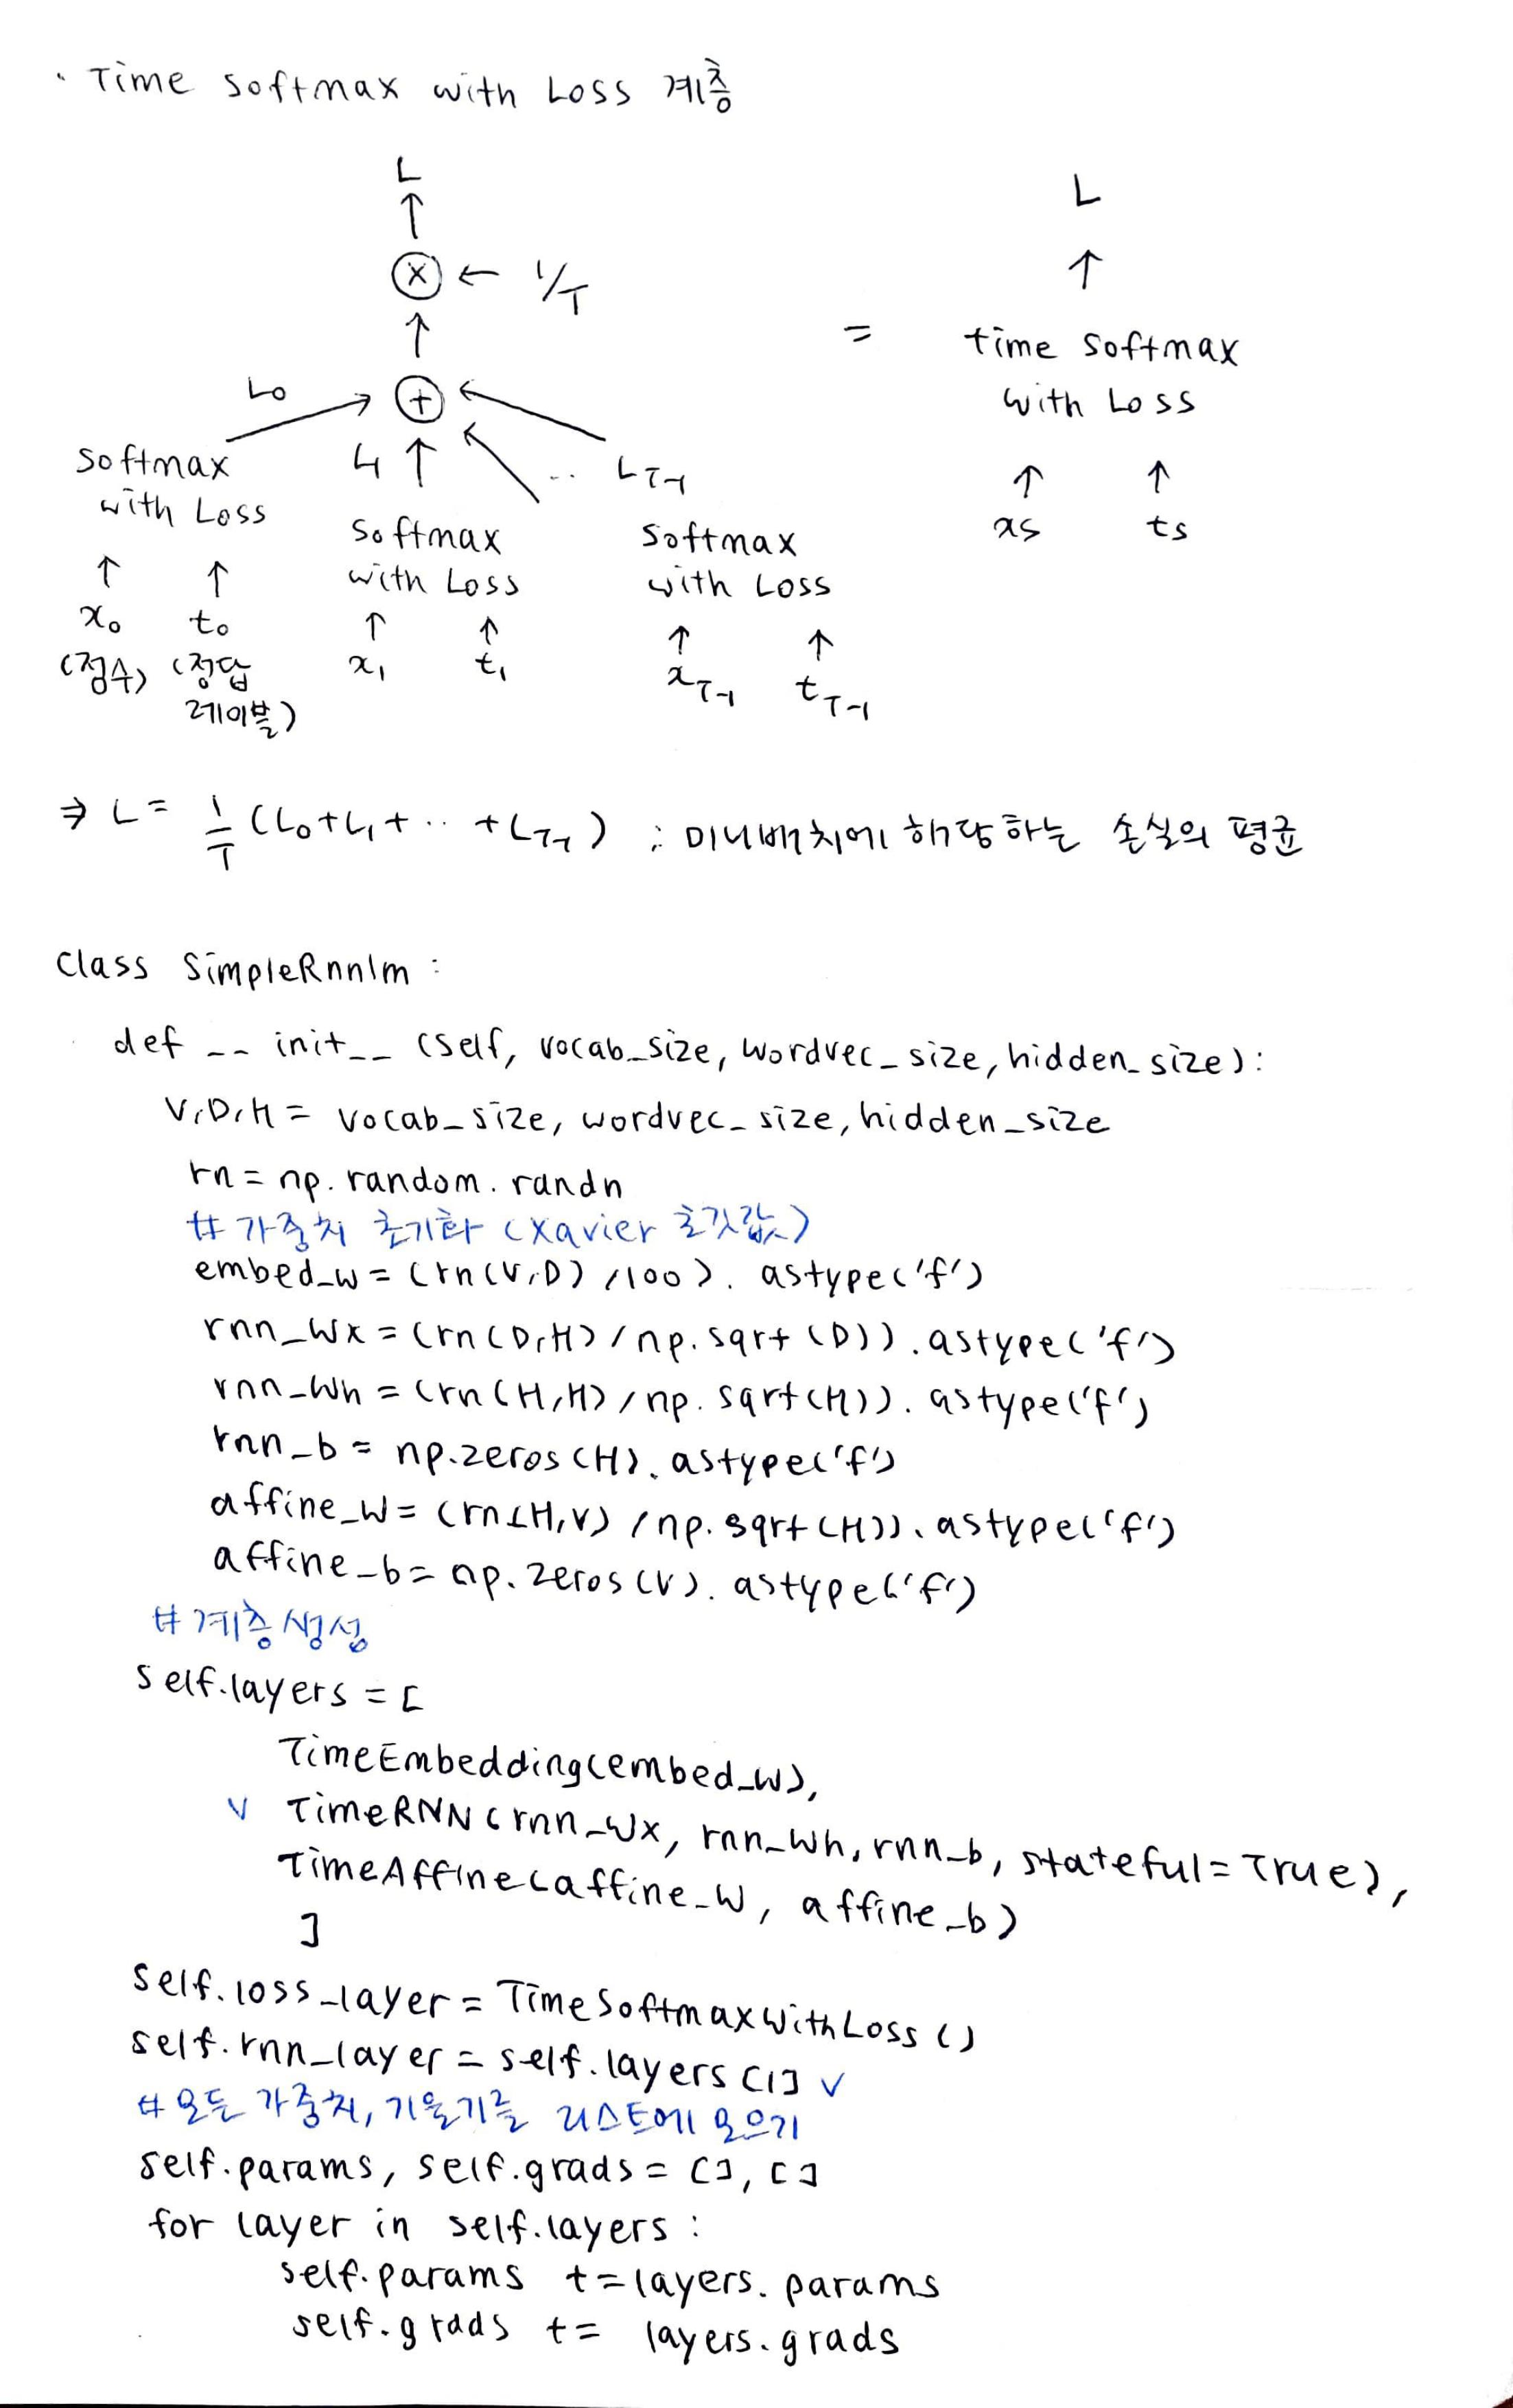 · Time softmax with Loss 계층
L
↑
ⓧ ← 1/T
↑
L0 → ⊕ ←
L1 ↑ .. LT-1
softmax
with Loss
↑ ↑
x0 t0
(점수) (정답
레이블)
softmax
with Loss
↑ ↑
x1 t1
softmax
with Loss
↑ ↑
xT-1 tT-1
=
L
↑
time softmax
with Loss
↑ ↑
xs ts
⇒ L = 1/T (L0+L1+ ·· +LT-1) ; 미니배치에 해당하는 손실의 평균
class SimpleRnnlm :
def __ init__ (self, vocab_size, wordvec_size, hidden_size):
V,D,H = vocab_size, wordvec_size, hidden_size
rn = np.random.randn
# 가중치 초기화 (Xavier 초깃값)
embed_w = (rn(V,D) /100). astype('f')
rnn_Wx = (rn(D,H) / np.sqrt(D)).astype('f')
rnn_Wh = (rn(H,H) / np.sqrt(H)).astype('f')
rnn_b = np.zeros(H).astype('f')
affine_W = (rn(H,V) / np.sqrt(H)).astype('f')
affine_b = np.zeros(V).astype('f')
# 계층 생성
self.layers = [
TimeEmbedding(embed_w),
v TimeRNN(rnn_Wx, rnn_Wh, rnn_b, stateful=True),
TimeAffine(affine_W, affine_b)
]
self.loss_layer = TimeSoftmaxWithLoss()
self.rnn_layer = self.layers[1] v
# 모든 가중치, 기울기를 리스트에 모으기
self.params, self.grads = [], []
for layer in self.layers :
self.params += layers.params
self.grads += layers.grads